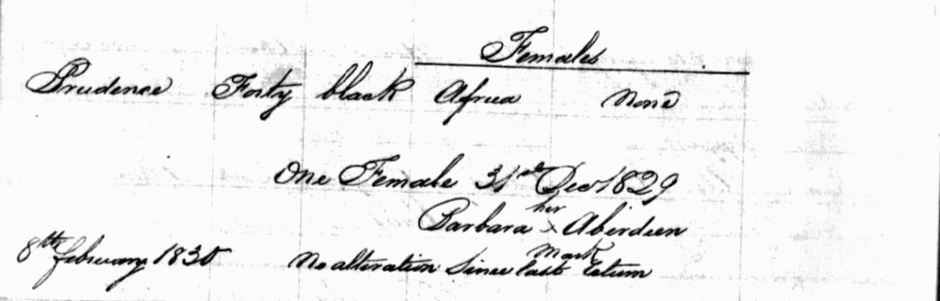 Females
Prudence Forty black Africa None
One Female 31st Decr 1829
her
Barbara x Aberdeen
Mark
8th february 1830 No alteration Since last return